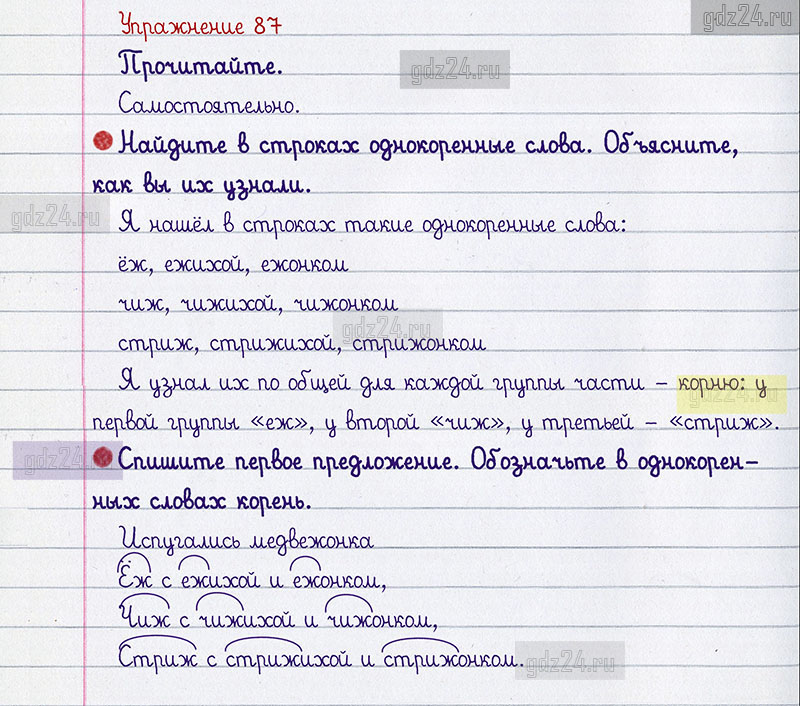 Упражнение 87
gdz24.ru
Прочитайте.
gdz24.ru
Самостоятельно.
Найдите в строках однокоренные слова. Объясните,
как вы их узнали.
gdz24.ru
Я нашёл в строках такие однокоренные слова:
ёж, ежихой, ежонком
чиж, чижихой, чижонком
gdz24.ru
стриж, стрижихой, стрижонком
Я узнал их по общей для каждой группы части – корню: у
gdz24.ru
первой группы «еж», у второй «чиж», у третьей – «стриж».
gdz24.ru
Спишите первое предложение. Обозначьте в однокорен-
ных словах корень.
Испугались медвежонка
Ёж с ежихой и ежонком,
Чиж с чижихой и чижонком,
Стриж с стрижихой и стрижонком.
gdz24.ru